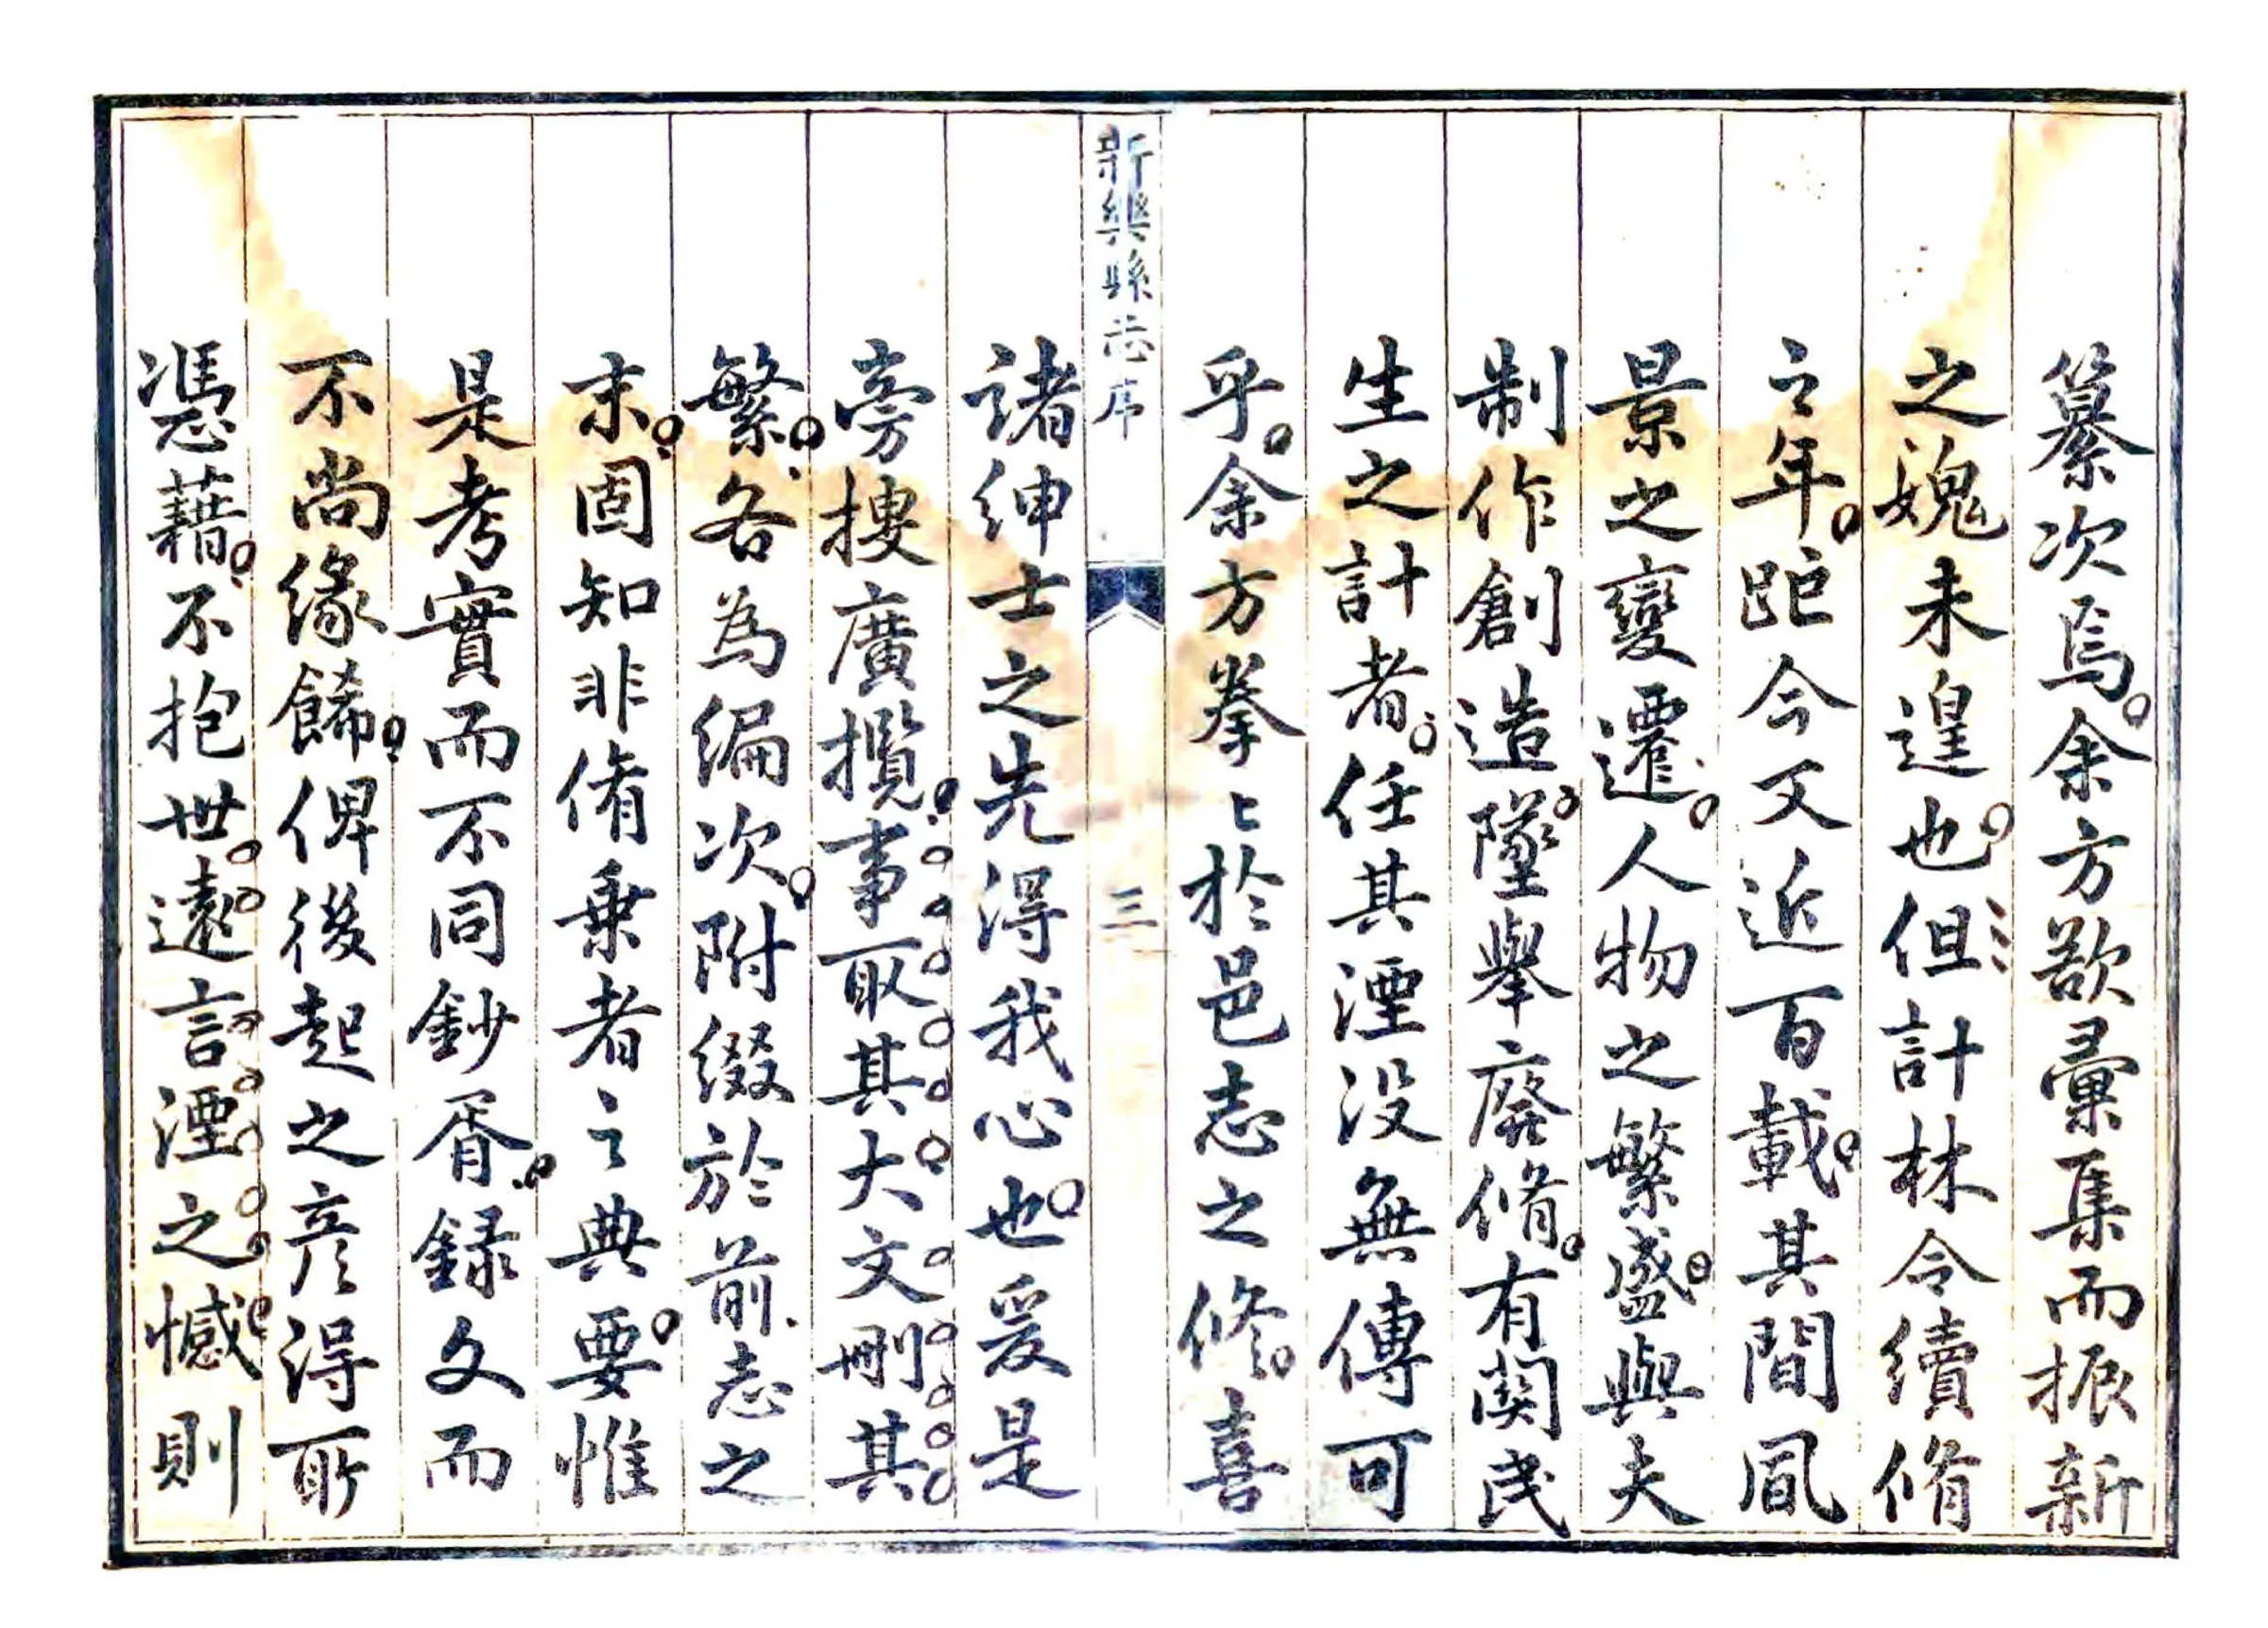 纂次焉余方欲彙集而振新
之媿未遑也但計林令續脩
之年距今又近百載其間風
景之變遷人物之繁盛與夫
制作創造墜舉廢脩有関民
生之計者任其湮没無傳可
乎余方拳〻於邑志之修喜
新樂縣志序
三
諸紳士之先得我心也爰是
旁搜廣攬事取其大文刪其
繁各為编次附缀於前志之
末固知非脩乗者之典要惟
是考實而不同鈔胥録文而
不尚緣餙俾後起之彦得所
憑藉不抱世遠言湮之憾則